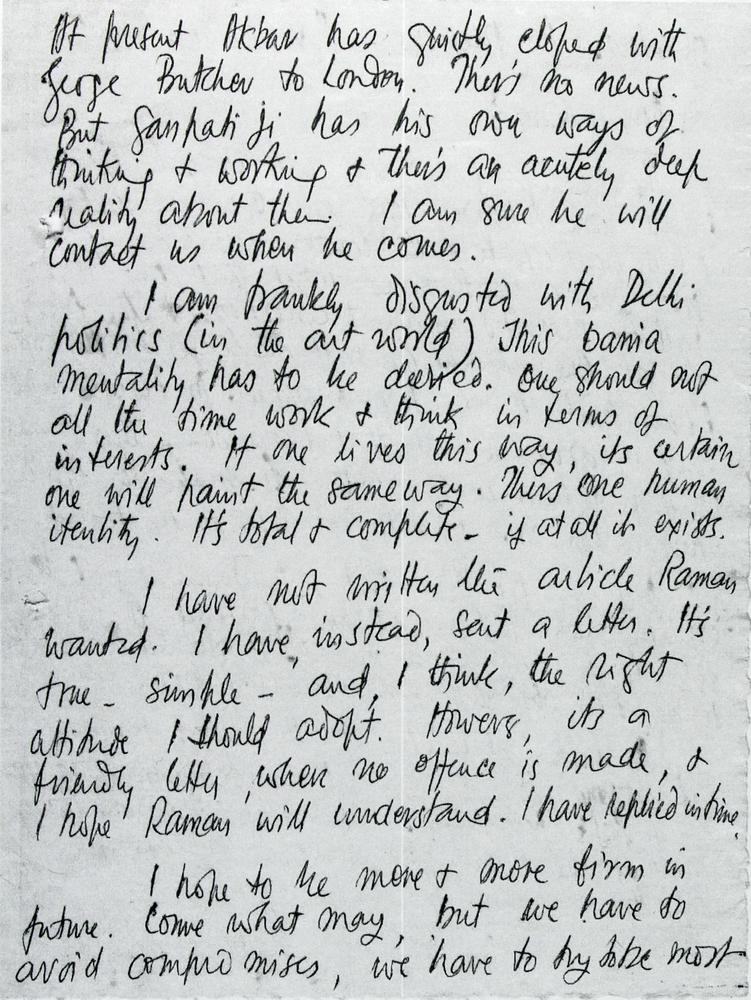 At present Akbar has quietly eloped with
George Butcher to London. There's no news.
But Ganpati Ji has his own ways of
thinking & working & there's an acutely deep
reality about them. I am sure he will
contact us when he comes.
I am frankly disgusted with Delhi
politics (in the art world) This bania
mentality has to be decried. One should not
all the time work & think in terms of
interests. If one lives this way, its certain
one will paint the same way. There's one human
identity. It's total & complete - if at all it exists.
I have not written the article Raman
wanted. I have, instead, sent a letter. It's
true - simple - and, I think, the right
attitude I should adopt. However, its a
friendly letter, where no offence is made, &
I hope Raman will understand. I have replied in time.
I hope to be more & more firm in
future. Come what may, but we have to
avoid compromises, we have to try to be most